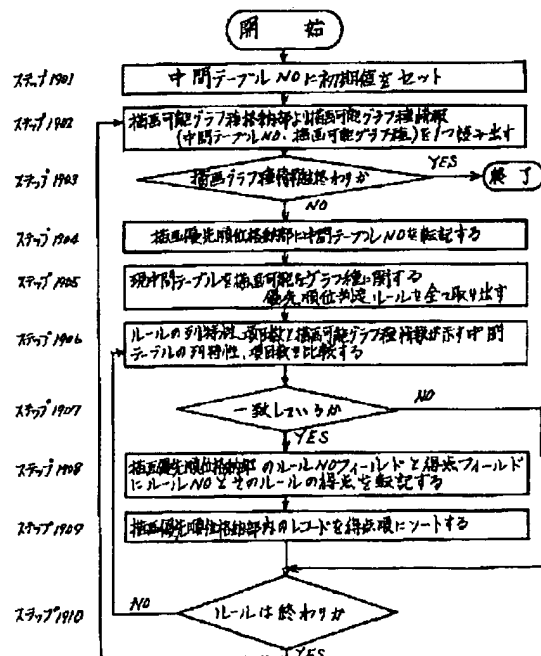 開 始
ステップ1901
中間テーブルNOに初期値をセット
ステップ1902
描画可能グラフ種格納部より描画可能グラフ種情報
(中間テーブルNO、描画可能グラフ種)を1つ読み出す
ステップ1903
描画グラフ種情報終わりか
YES
終了
NO
ステップ1904
描画優先順位格納部に中間テーブルNOを転記する
ステップ1905
現中間テーブルで描画可能なグラフ種に関する
優先順位判定ルールを全て取り出す
ステップ1906
ルールの列特性、項目数と描画可能グラフ種情報が示す中間
テーブルの列特性、項目数を比較する
ステップ1907
一致しているか
NO
YES
ステップ1908
描画優先順位格納部のルールNOフィールドと得点フィールド
にルールNOとそのルールの得点を転記する
ステップ1909
描画優先順位格納部内のレコードを得点順にソートする
ステップ1910
NO
ルールは終わりか
YES